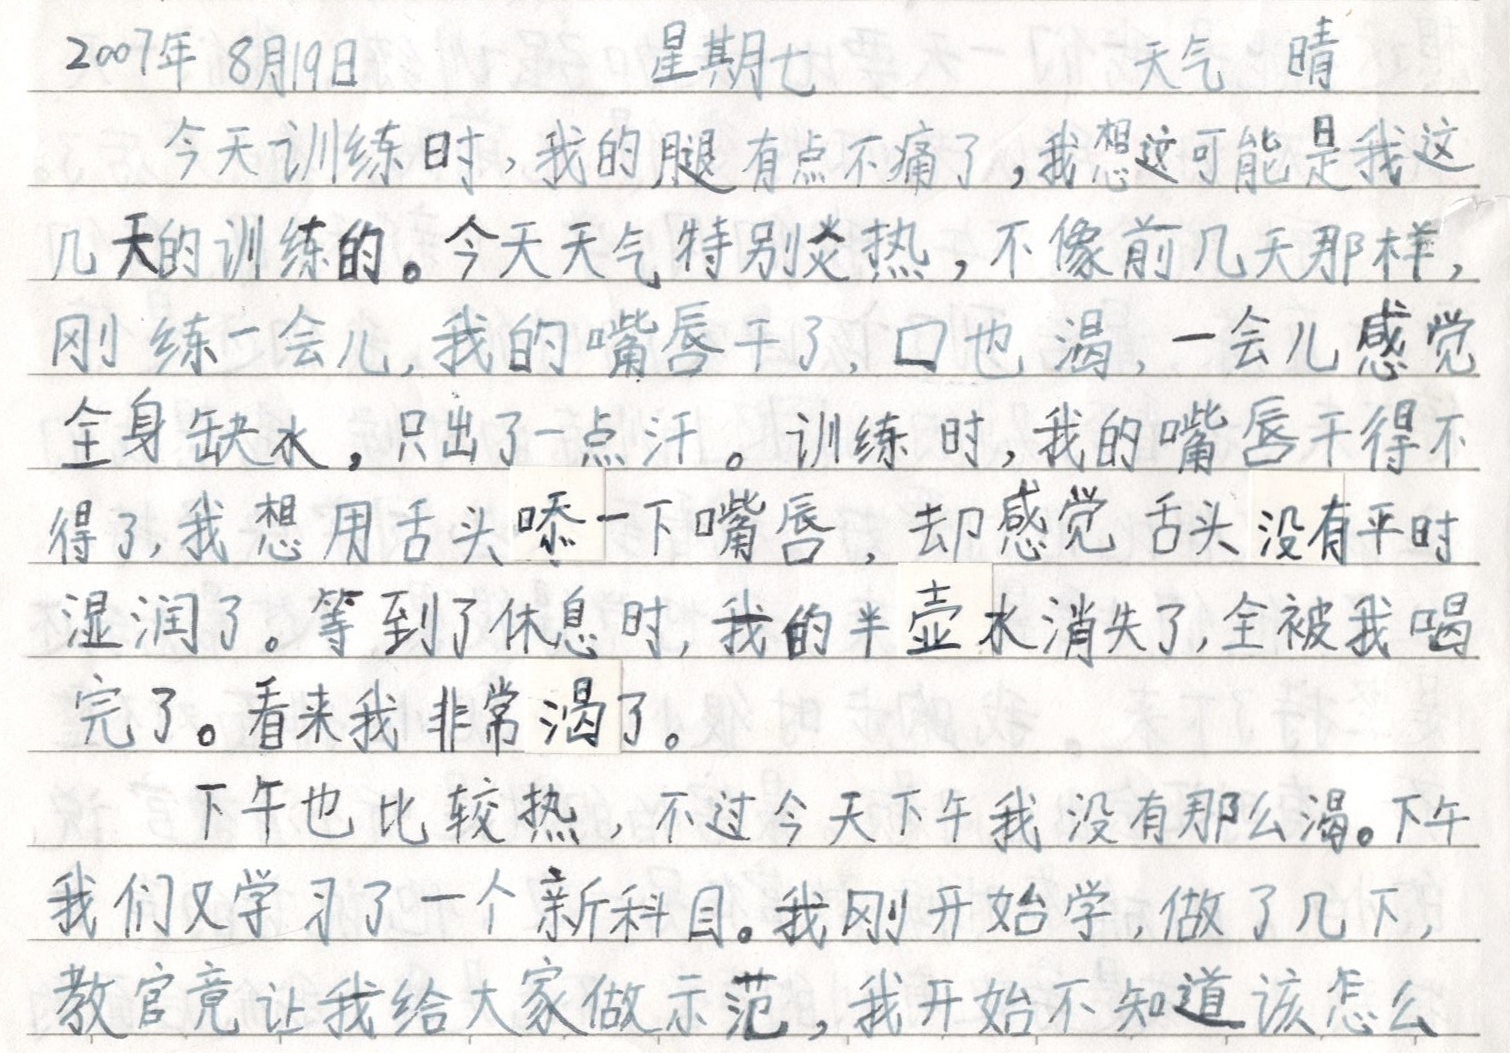 2007年 8月19日 星期七 天气 晴
今天训练时，我的腿有点不痛了，我想这可能是我这
几天的训练的。今天天气特别炎热，不像前几天那样，
刚练一会儿，我的嘴唇干了，口也渴，一会儿感觉
全身缺水，只出了一点汗。训练时，我的嘴唇干得不
得了，我想用舌头舔一下嘴唇，却感觉舌头没有平时
湿润了。等到了休息时，我的半壶水消失了，全被我喝
完了。看来我非常渴了。
下午也比较热，不过今天下午我没有那么渴。下午
我们又学习了一个新科目。我刚开始学，做了几下，
教官竟让我给大家做示范，我开始不知道该怎么